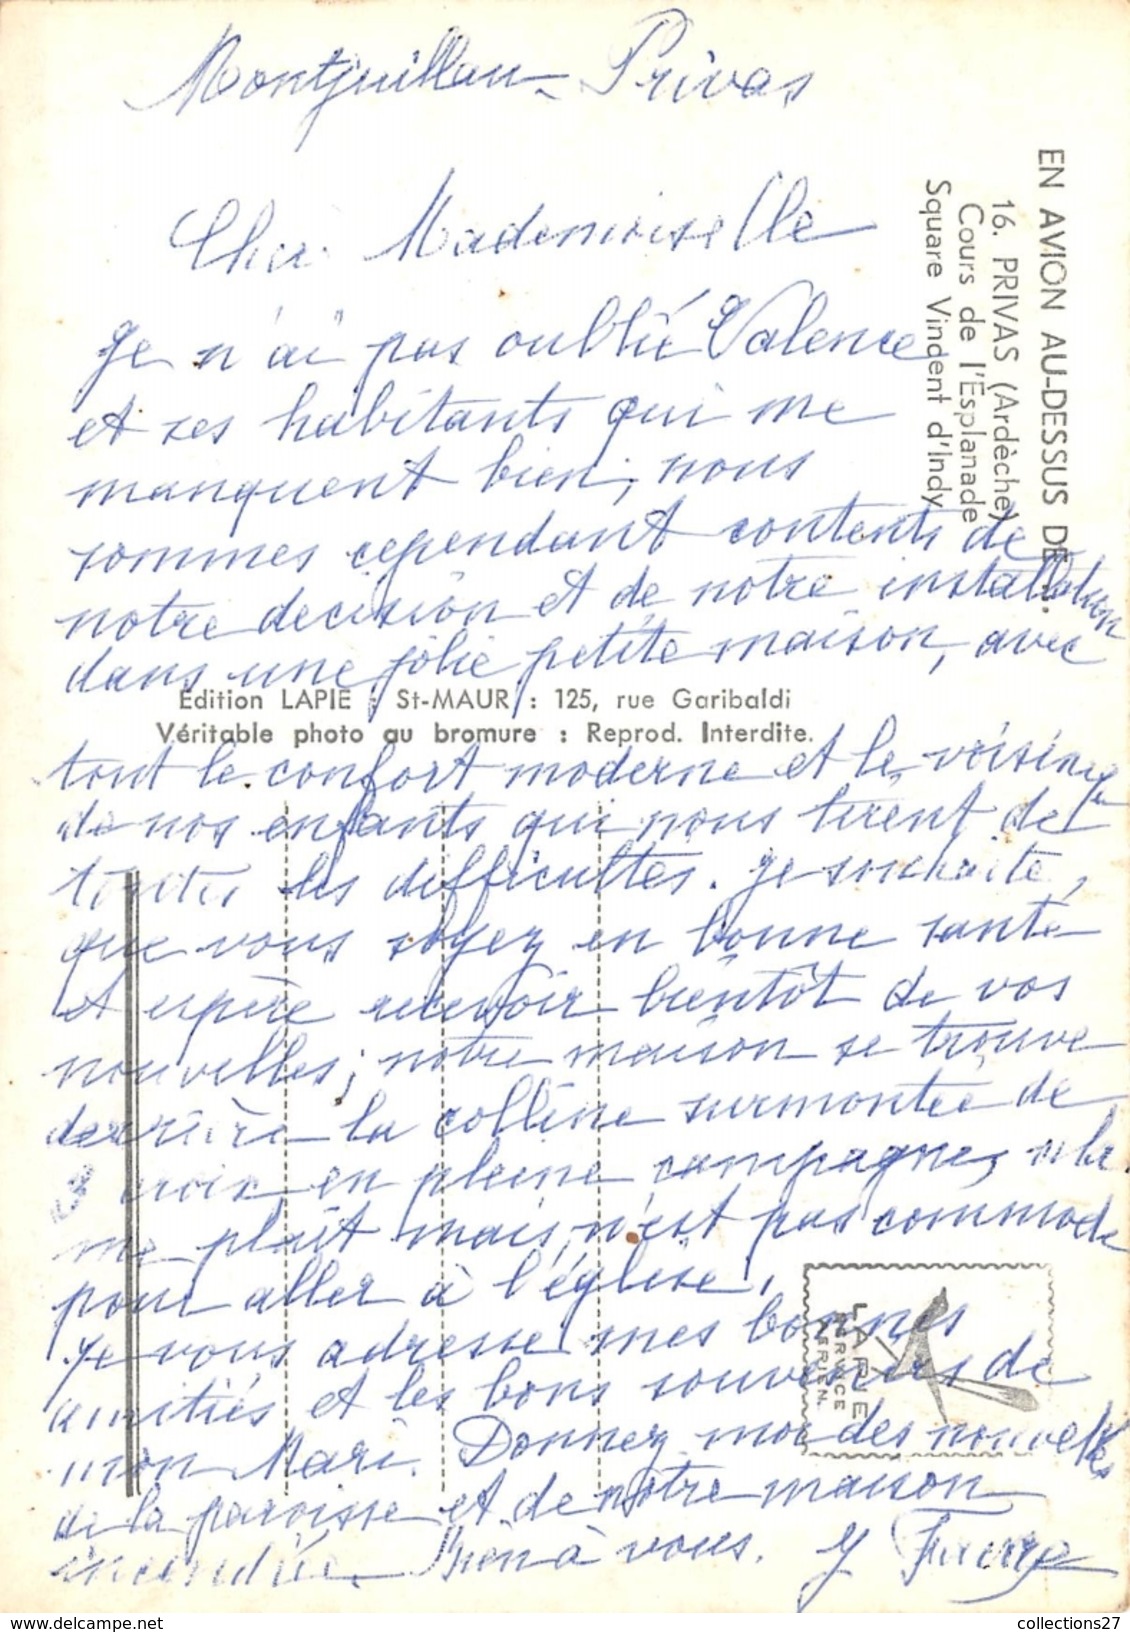 Privas
Cher Mademoiselle
Je n'ai pas oublié Valence
et ses habitants qui me
manquent bien, nous
sommes cependant contents de
notre decision et de notre installation
dans une jolie petite maison, avec
tout le confort moderne et le voisinage
de nos enfants qui nous tirent de
toutes les difficultés. Je souhaite,
que vous soyez en bonne santé
et espère recevoir bientôt de vos
nouvelles; notre maison se trouve
derrière la colline surmontée de
3 croix en pleine campagne, cela
me plaît mais, n'est pas commode
pour aller à l'église,
Je vous adresse mes bonnes
amitiés et les bons souvenirs de
mon Mari. Donnez moi des nouvelles
de la paroisse et de notre maison
incendiée. Bien à vous. Y
EN AVION AU-DESSUS DE ...
16. PRIVAS (Ardèche)
Cours de l'Esplanade
Square Vindent d'Indy
Edition LAPIE : St-MAUR : 125, rue Garibaldi
Véritable photo au bromure : Reprod. Interdite.
LAPIE
SERVICE
AERIEN.
collections27